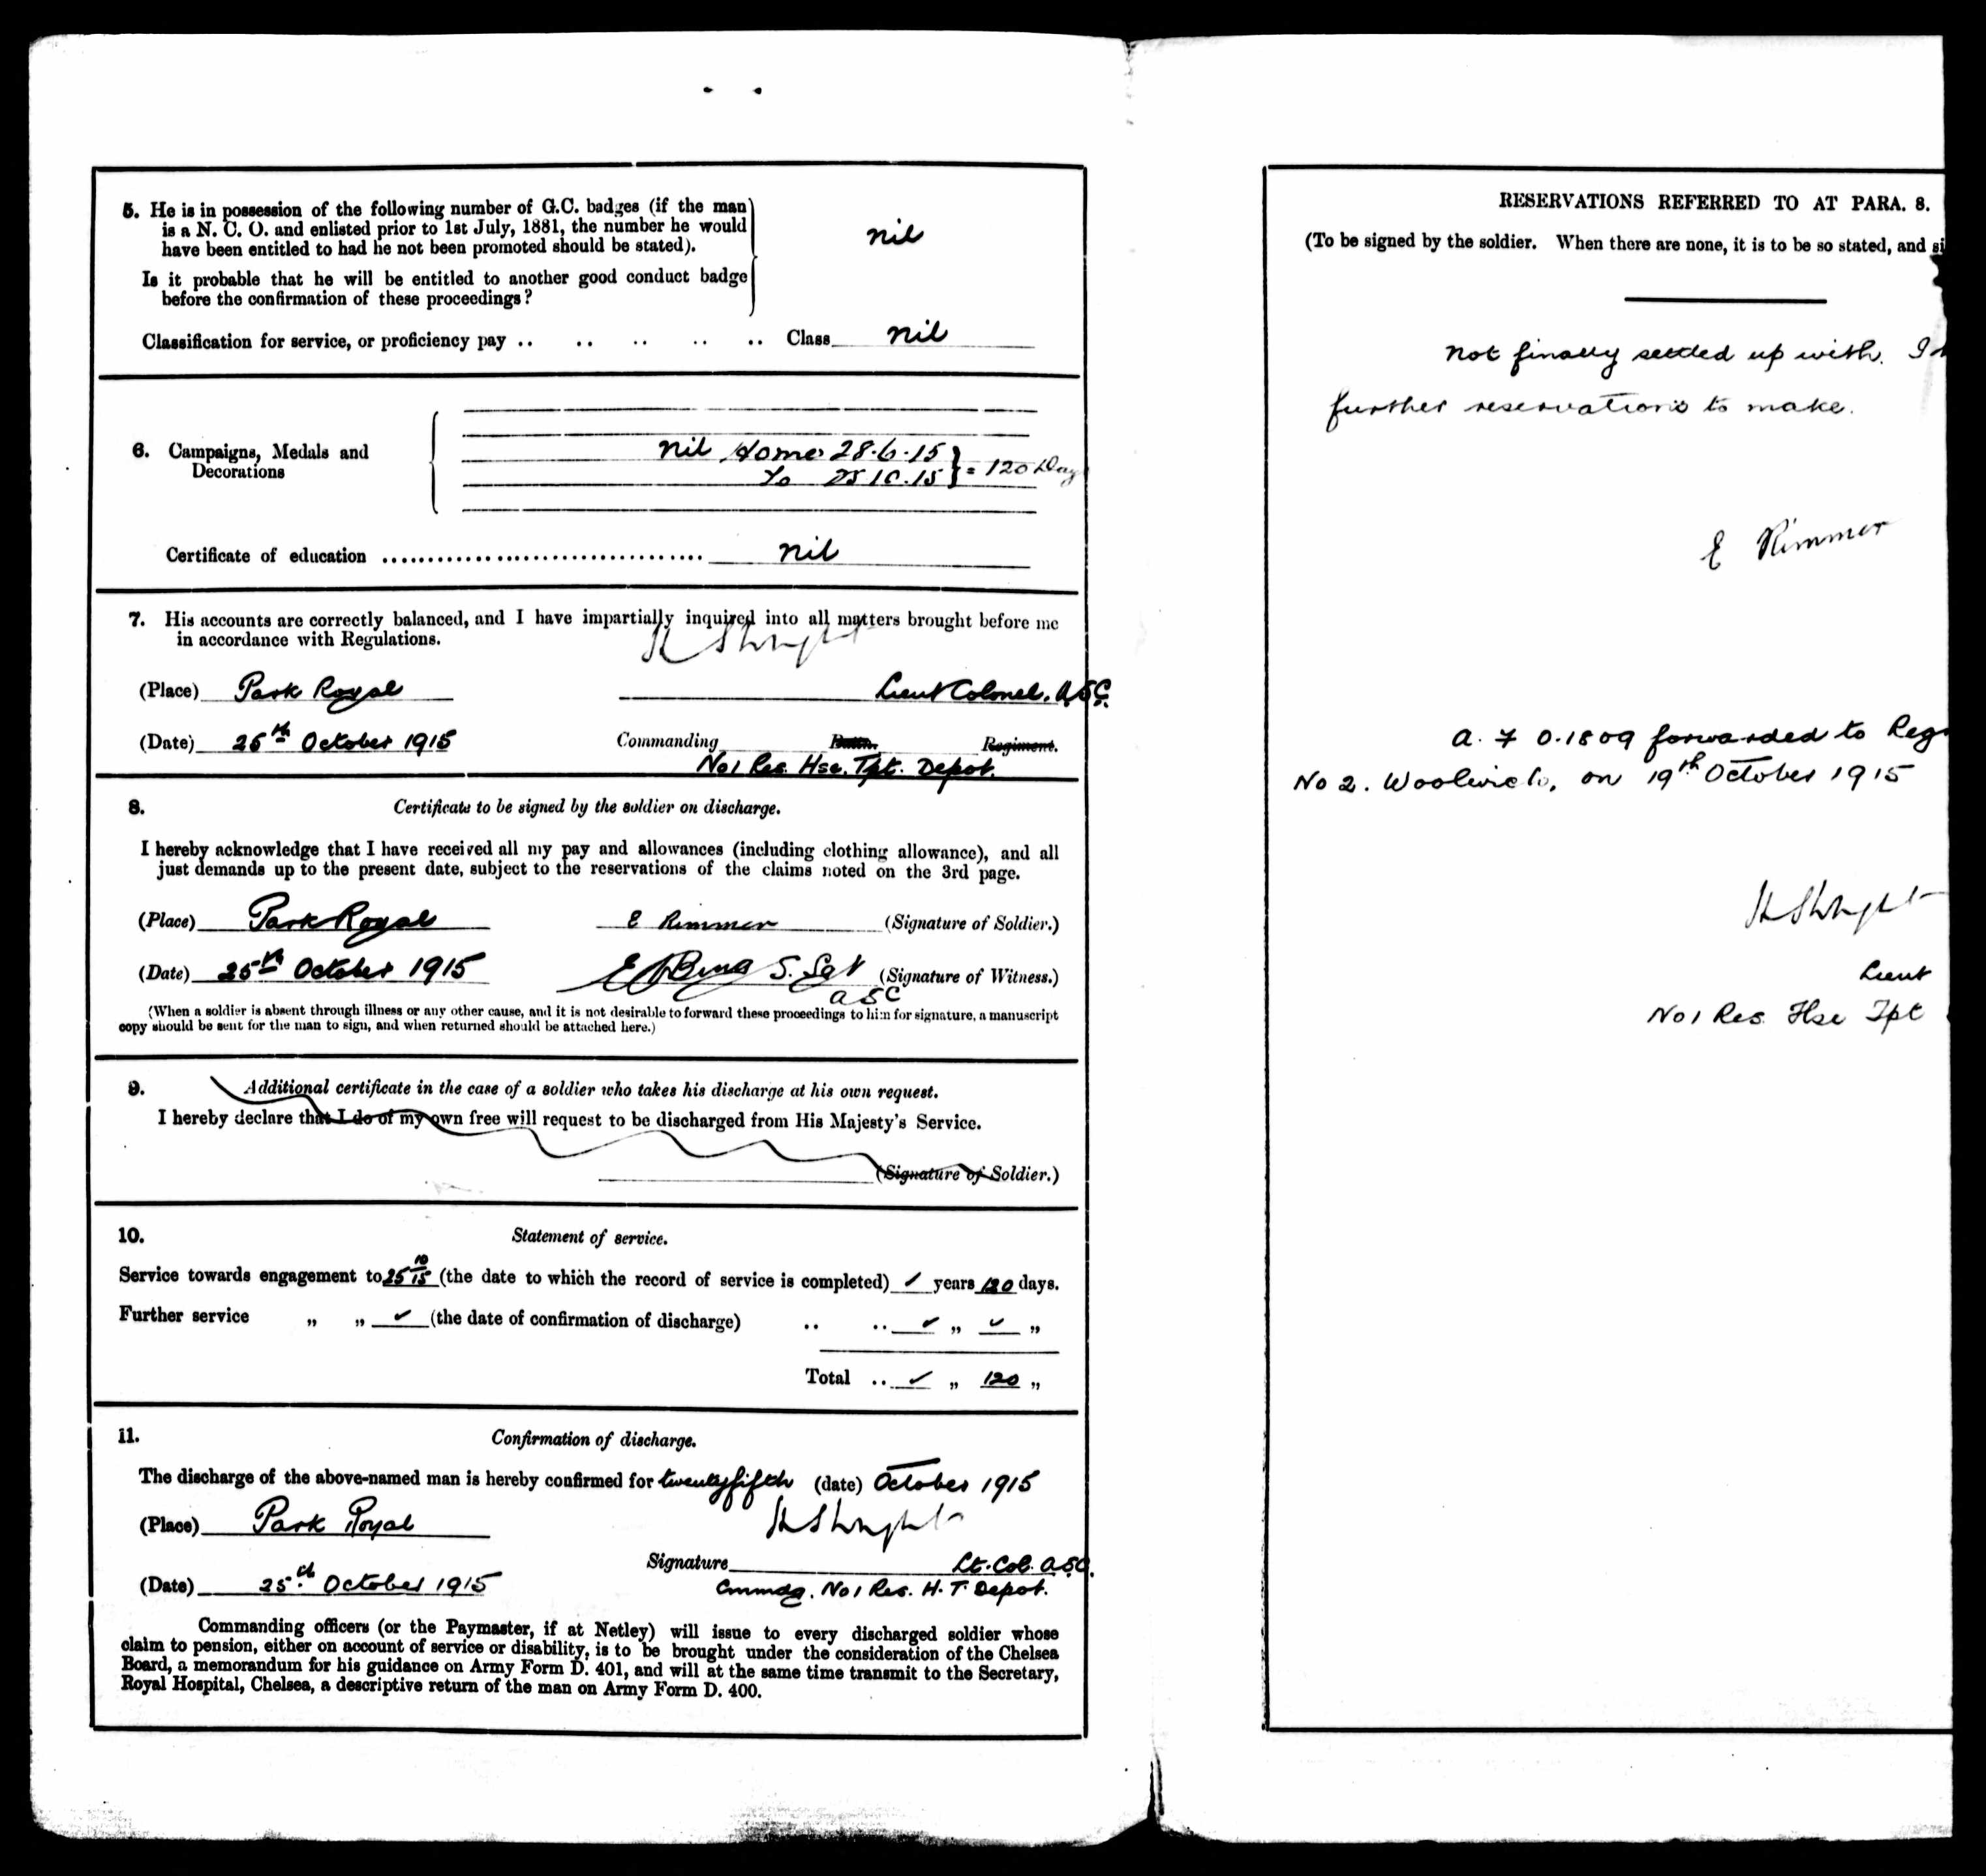 5. He is in possession of the following number of G.C. badges (if the man
is a N. C. O. and enlisted prior to 1st July, 1881, the number he would
have been entitled to had he not been promoted should be stated).
nil
Is it probable that he will be entitled to another good conduct badge
before the confirmation of these proceedings?
Classification for service, or proficiency pay .. .. .. .. .. Class nil
6. Campaigns, Medals and
Decorations
nil Home 28.6.15
To 25 10.15 } = 120 Day
Certificate of education nil
7. His accounts are correctly balanced, and I have impartially inquired into all matters brought before me
in accordance with Regulations.
(Place) Park Royal Lieut Colonel. A.S.C.
(Date) 25th October 1915 Commanding Battn. Regiment.
No 1 Res. Hse. Tpt. Depot.
8. Certificate to be signed by the soldier on discharge.
I hereby acknowledge that I have received all my pay and allowances (including clothing allowance), and all
just demands up to the present date, subject to the reservations of the claims noted on the 3rd page.
(Place) Park Royal E Rimmer (Signature of Soldier.)
(Date) 25th October 1915 S. Sgt (Signature of Witness.)
ASC
(When a soldier is absent through illness or any other cause, and it is not desirable to forward these proceedings to him for signature, a manuscript
copy should be sent for the man to sign, and when returned should be attached here.)
9. Additional certificate in the case of a soldier who takes his discharge at his own request.
I hereby declare that I do of my own free will request to be discharged from His Majesty's Service.
(Signature of Soldier.)
10. Statement of service.
Service towards engagement to 25 10/15 (the date to which the record of service is completed) ✓ years 120 days.
Further service „ „ ✓ (the date of confirmation of discharge) .. .. ✓ „ ✓ „
Total .. ✓ „ 120 „
11. Confirmation of discharge.
The discharge of the above-named man is hereby confirmed for twentyfifth (date) October 1915
(Place) Park Royal
Signature Lt. Col. A.S.C.
(Date) 25th October 1915 Commdg. No 1 Res. H. T. Depot.
Commanding officers (or the Paymaster, if at Netley) will issue to every discharged soldier whose
claim to pension, either on account of service or disability, is to be brought under the consideration of the Chelsea
Board, a memorandum for his guidance on Army Form D. 401, and will at the same time transmit to the Secretary,
Royal Hospital, Chelsea, a descriptive return of the man on Army Form D. 400.
RESERVATIONS REFERRED TO AT PARA. 8.
(To be signed by the soldier. When there are none, it is to be so stated, and si
Not finally settled up with. I
further reservations to make.
E Rimmer
A. F O.1809 forwarded to Reg
No 2. Woolwich, on 19th October 1915
Lieut
No 1 Res Hse Tpt